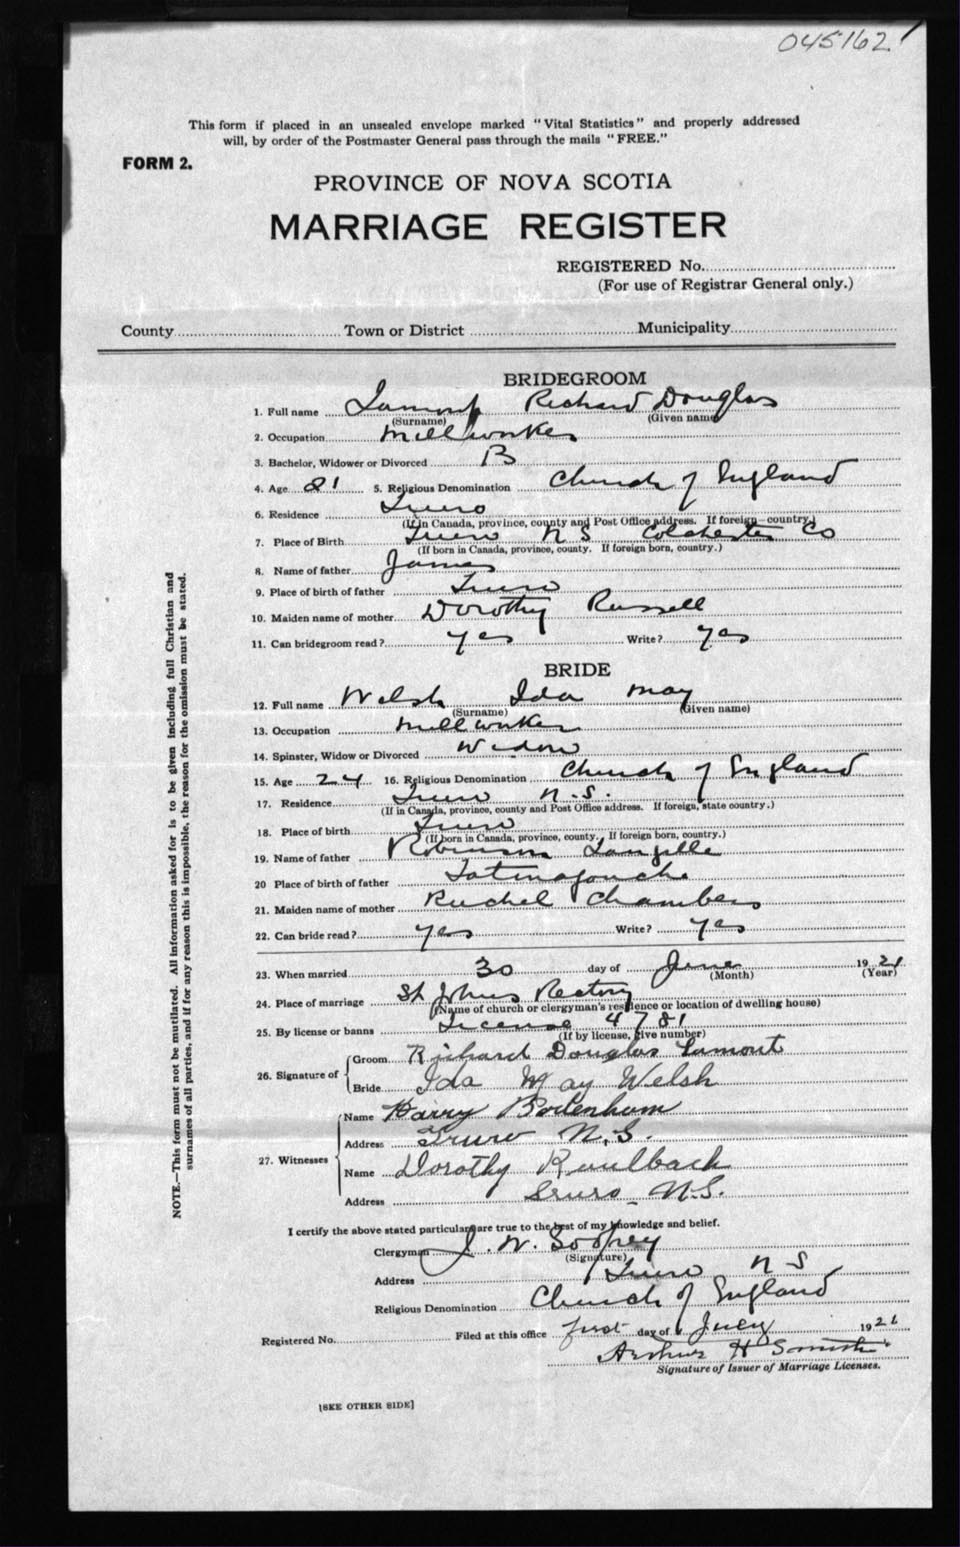 045162
This form if placed in an unsealed envelope marked "Vital Statistics" and properly addressed
will, by order of the Postmaster General pass through the mails "FREE."
FORM 2.
PROVINCE OF NOVA SCOTIA
MARRIAGE REGISTER
REGISTERED No.
(For use of Registrar General only.)
County Town or District Municipality
BRIDEGROOM
1. Full name Lamont Richard Douglas
(Surname) (Given name)
2. Occupation Mill worker
3. Bachelor, Widower or Divorced B
4. Age 5. Religious Denomination Church of England
6. Residence Truro
(If in Canada, province, county and Post Office address. If foreign—country.)
7. Place of Birth Truro N S Colchester Co
(If born in Canada, province, county. If foreign born, country.)
8. Name of father James
9. Place of birth of father Truro
10. Maiden name of mother Dorothy Russell
11. Can bridegroom read? yes Write? yes
BRIDE
12. Full name Welsh Ida May
(Surname) (Given name)
13. Occupation Mill worker
14. Spinster, Widow or Divorced Widow
15. Age 24 16. Religious Denomination Church of England
17. Residence Truro N.S.
(If in Canada, province, county and Post Office address. If foreign, state country.)
18. Place of birth Truro
(If born in Canada, province, county. If foreign born, country.)
19. Name of father Robinson Langille
20 Place of birth of father Tatmagouche
21. Maiden name of mother Rachel Chambers
22. Can bride read? yes Write? yes
23. When married 30 day of June 1921
(Month) (Year)
24. Place of marriage St Johns Rectory
(Name of church or clergyman's residence or location of dwelling house)
25. By license or banns License 4781
(If by license, give number)
26. Signature of
Groom Richard Douglas Lamont
Bride Ida May Welsh
27. Witnesses
Name Harry Bodenham
Address Truro N.S.
Name Dorothy Kaulback
Address Truro N.S.
I certify the above stated particulars are true to the best of my knowledge and belief.
Clergyman J. W. Godfrey
(Signature)
Address Truro N S
Religious Denomination Church of England
Registered No. Filed at this office first day of July 1921
Arthur H Smith
Signature of Issuer of Marriage Licenses.
[SEE OTHER SIDE]
NOTE.—This form must not be mutilated. All information asked for is to be given including full Christian and
surnames of all parties, and if for any reason this is impossible, the reason for the omission must be stated.